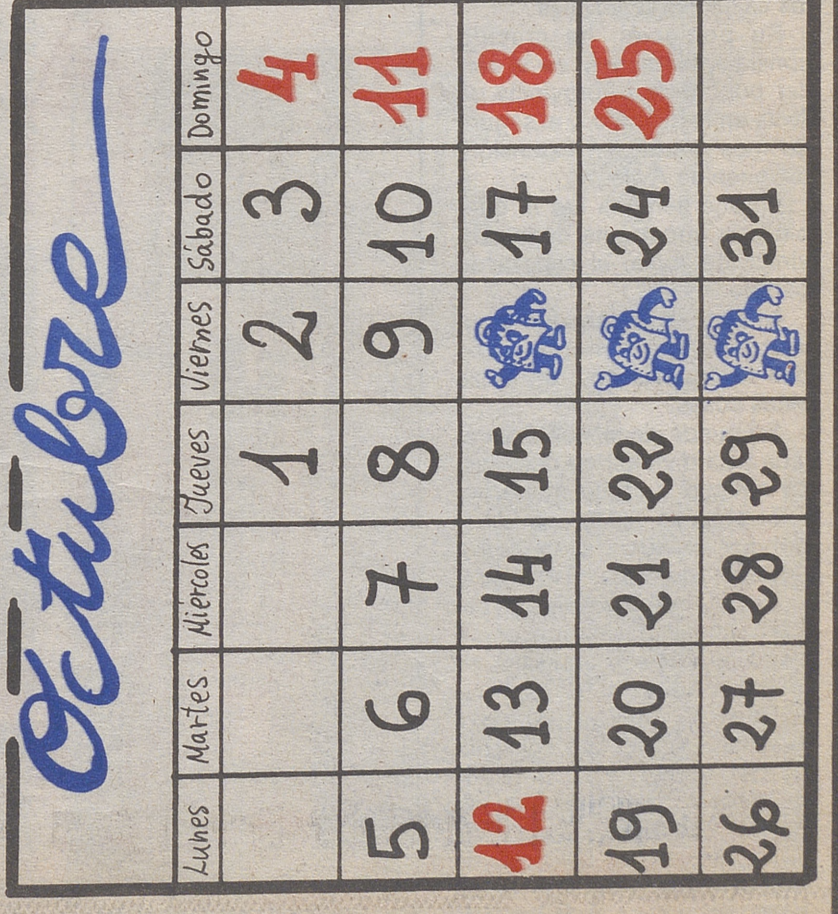 Octubre
Lunes Martes Miércoles Jueves Viernes Sábado Domingo
1 2 3 4
5 6 7 8 9 10 11
12 13 14 15 17 18
19 20 21 22 24 25
26 27 28 29 31